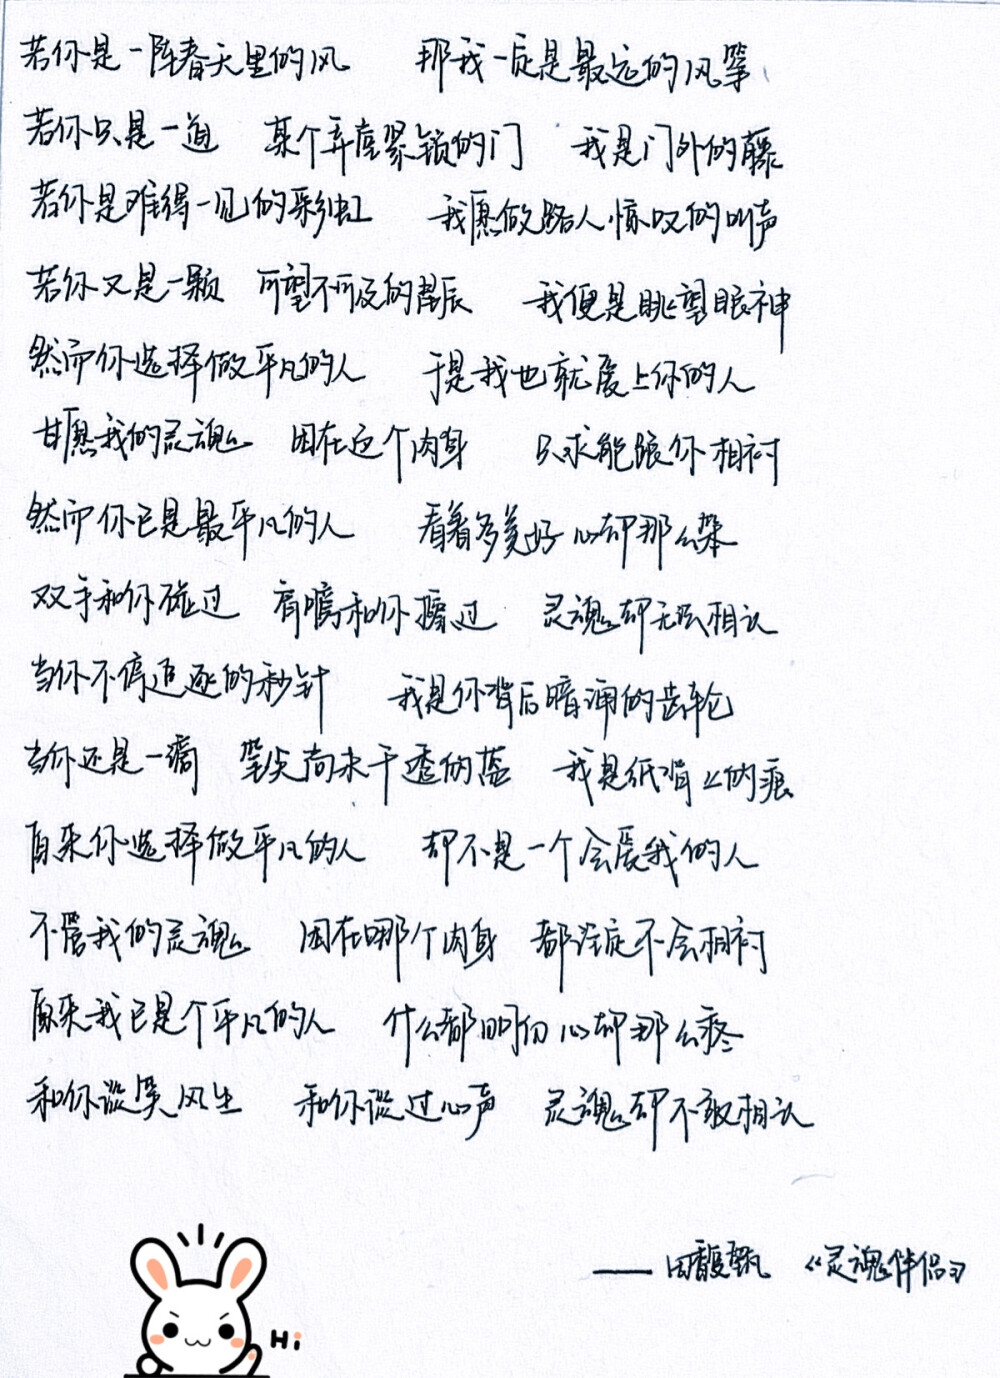 若你是一阵春天里的风 那我一定是最远的风筝
若你只是一道 某个弄堂紧锁的门 我是门外的藤
若你是难得一见的彩虹 我愿做路人惊叹的叫声
若你又是一颗 可望不可及的星辰 我便是眺望眼神
然而你选择做平凡的人 于是我也就爱上你的人
甘愿我的灵魂 困在这个肉身 只求能跟你相衬
然而你已是最平凡的人 看着多美好 心却那么笨
双手和你碰过 肩膀和你擦过 灵魂却无法相认
当你不停追逐的秒针 我是你背后暗涌的齿轮
当你还是一滴 笔尖尚未干透的蓝 我是纸背上的痕
原来你选择做平凡的人 却不是一个会爱我的人
不管我的灵魂 困在哪个肉身 都注定不会相衬
原来我已是个平凡的人 什么都明白 心却那么疼
和你谈笑风生 和你说过心声 灵魂却不敢相认
——田馥甄 《灵魂伴侣》
Hi